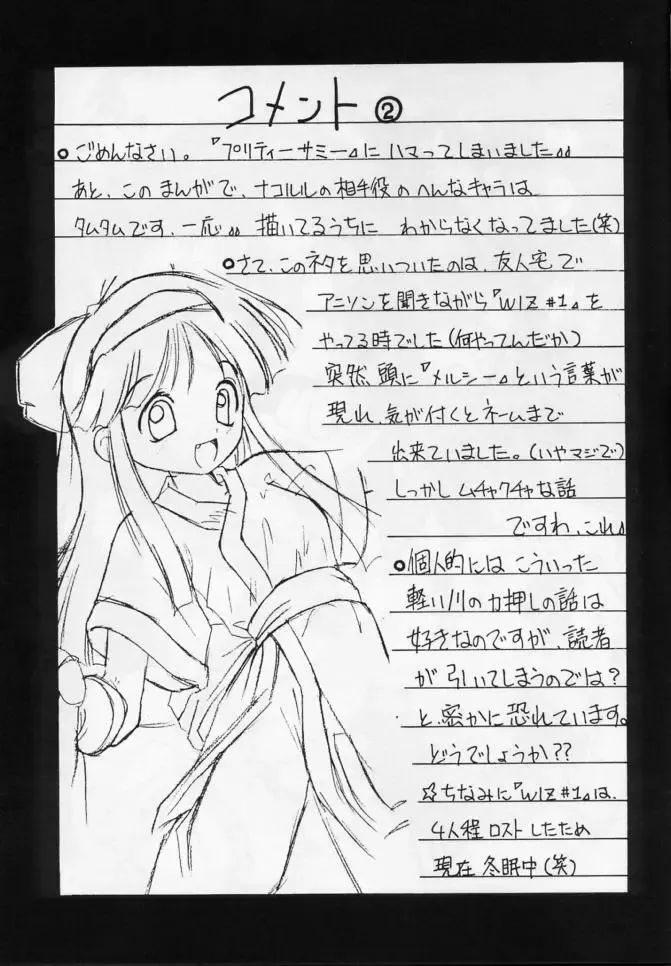 コメント②
○ごめんなさい。『プリティーサミー』にハマってしまいました。。
あと、このまんがで、ナコルルの相手役のへんなキャラは
タムタムです、一応。。描いてるうちに わからなくなってました(笑)
○さて、このネタを思いついたのは、友人宅で
アニソンを聞きながら『WIZ #1』を
やってる時でした(何やってんだか)
突然、頭に『メルシー』という言葉が
現れ、気が付くとネームまで
出来ていました。(いやマジで)
しっかしムチャクチャな話
ですわ、これ。
○個人的には こういった
軽いノリの力押しの話は
好きなのですが、読者
が引いてしまうのでは?
と、密かに恐れています。
どうでしょうか??
☆ちなみに『WIZ #1』は、
4人程ロストしたため
現在冬眠中(笑)